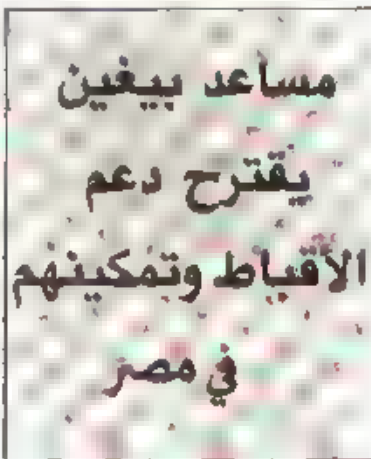 مساعد بيغين
يقترح دعم
الأقباط وتمكينهم
في مصر